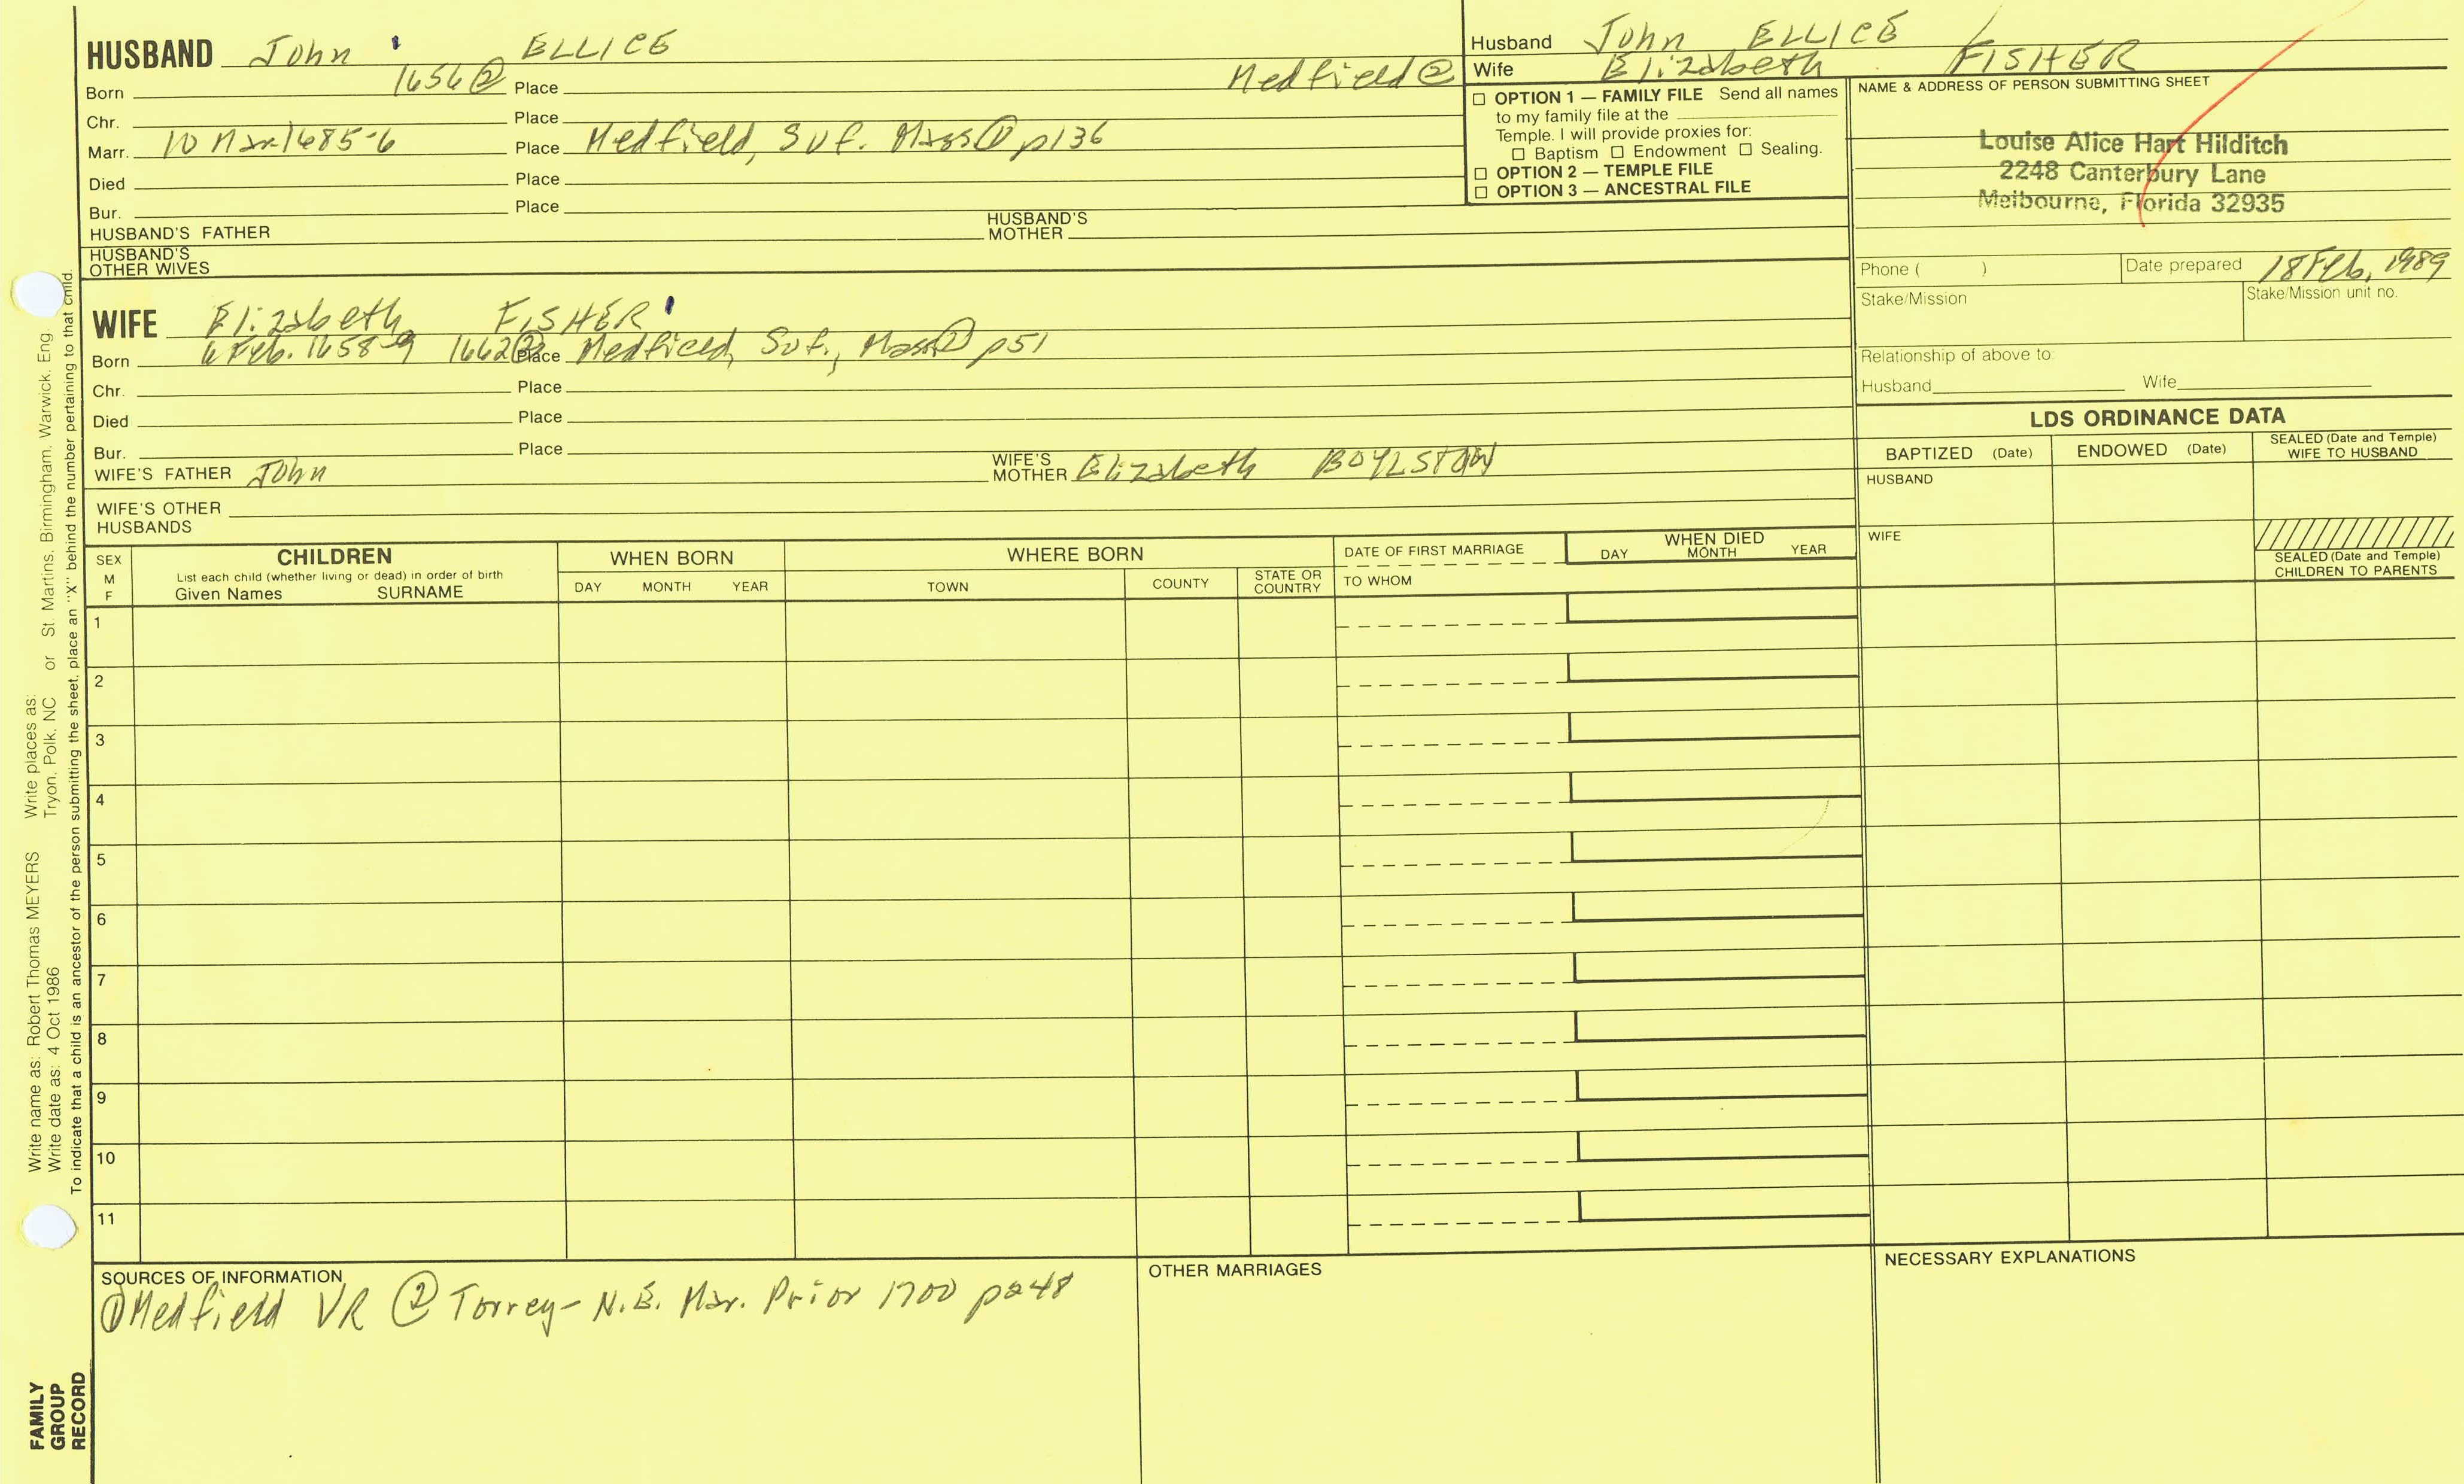 HUSBAND John ELLICE
Born 1656② Place Medfield②
Chr. Place
Marr. 10 Mar 1685-6 Place Medfield, Suf. Mass① p136
Died Place
Bur. Place
HUSBAND'S FATHER HUSBAND'S MOTHER
HUSBAND'S OTHER WIVES
Husband John ELLICE
Wife Elizabeth FISHER
☐ OPTION 1 — FAMILY FILE Send all names
to my family file at the
Temple. I will provide proxies for:
☐ Baptism ☐ Endowment ☐ Sealing.
☐ OPTION 2 — TEMPLE FILE
☐ OPTION 3 — ANCESTRAL FILE
NAME & ADDRESS OF PERSON SUBMITTING SHEET
Louise Alice Hart Hilditch
2248 Canterbury Lane
Melbourne, Florida 32935
Phone ( ) Date prepared 18 Feb, 1989
Stake/Mission Stake/Mission unit no.
Relationship of above to:
Husband Wife
WIFE Elizabeth FISHER
Born 6 Feb. 1658-9 1662② Place Medfield, Suf., Mass① p51
Chr. Place
Died Place
Bur. Place
WIFE'S FATHER John WIFE'S MOTHER Elizabeth BOYLSTON
WIFE'S OTHER
HUSBANDS
LDS ORDINANCE DATA
BAPTIZED (Date) ENDOWED (Date) SEALED (Date and Temple) WIFE TO HUSBAND
HUSBAND
WIFE
SEALED (Date and Temple)
CHILDREN TO PARENTS
SEX
M
F
CHILDREN
List each child (whether living or dead) in order of birth
Given Names SURNAME
WHEN BORN
DAY MONTH YEAR
WHERE BORN
TOWN COUNTY STATE OR COUNTRY
DATE OF FIRST MARRIAGE
TO WHOM
WHEN DIED
DAY MONTH YEAR
1
2
3
4
5
6
7
8
9
10
11
SOURCES OF INFORMATION
①Medfield VR ② Torrey- N.E. Mar. Prior 1700 pa48
OTHER MARRIAGES
NECESSARY EXPLANATIONS
Write name as: Robert Thomas MEYERS Write places as:
Write date as: 4 Oct 1986 Tryon, Polk, NC or St. Martins. Birmingham. Warwick. Eng.
To indicate that a child is an ancestor of the person submitting the sheet, place an "X" behind the number pertaining to that child.
FAMILY
GROUP
RECORD